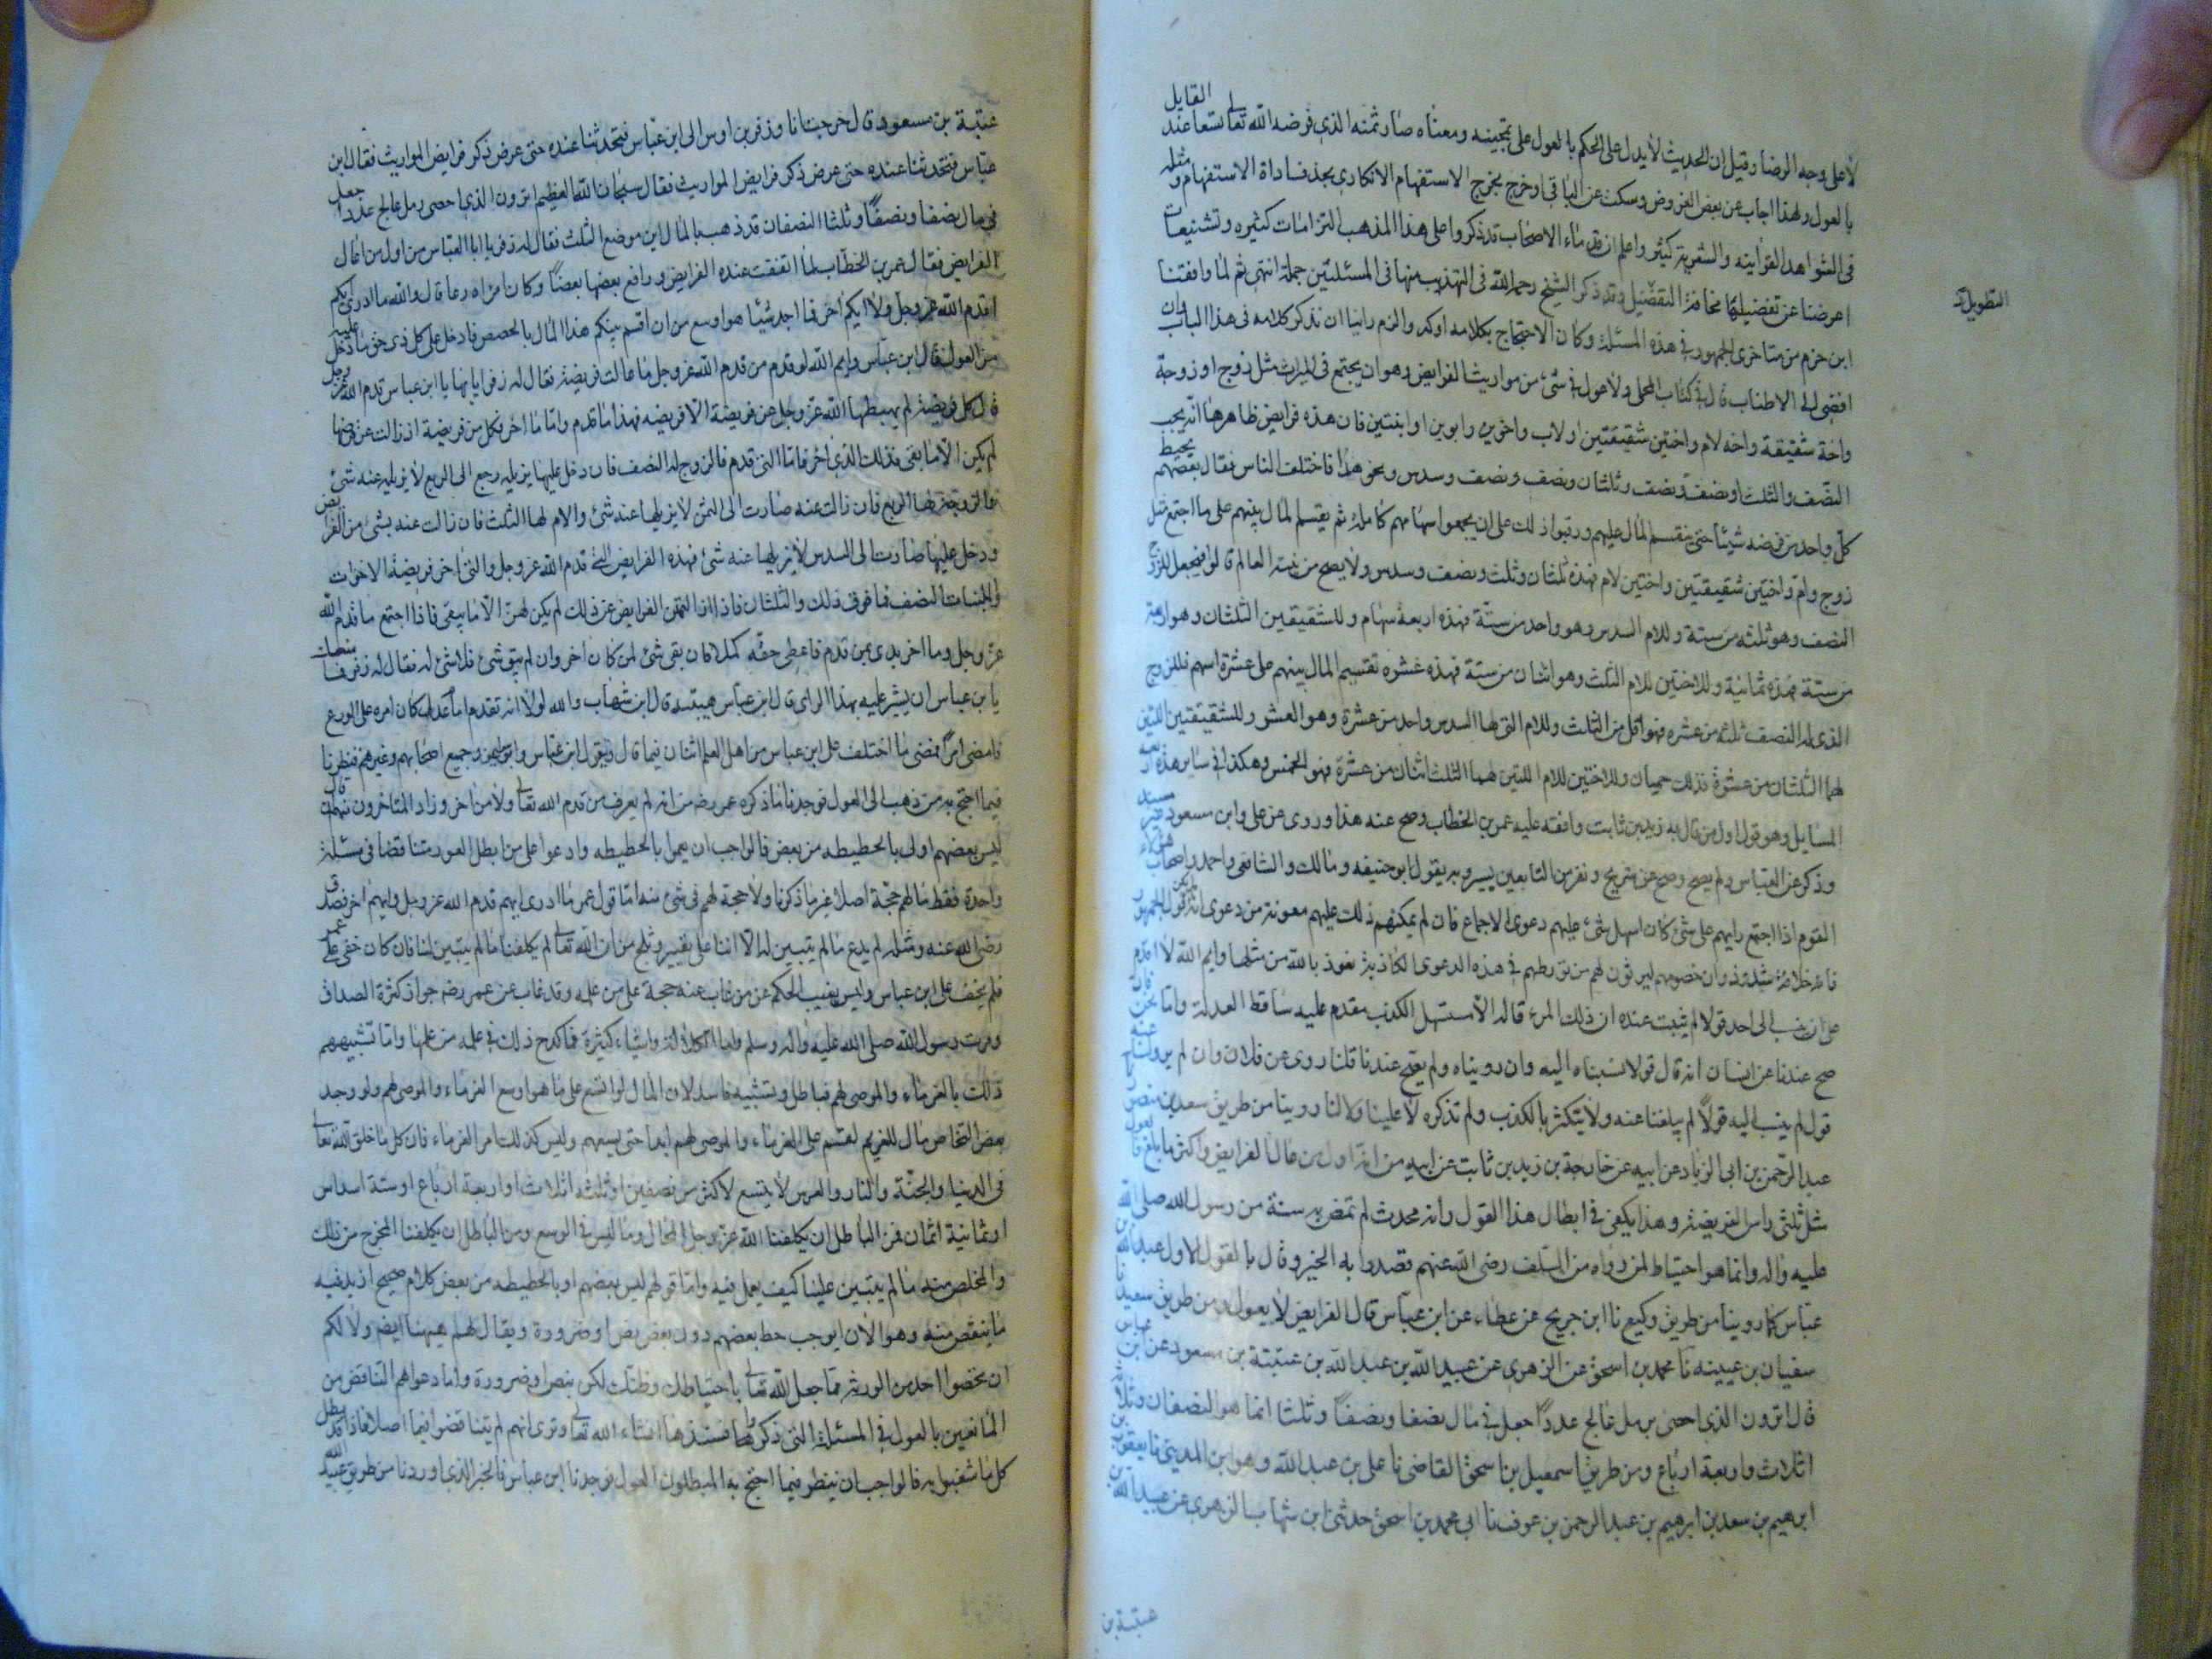 لا على وجه الرضا وقيل ان الحديث لا يدل على الحكم بالعول على تهجينه ومعناه صار ثمنه الذي فرضه الله تعالى تسعا عند القايل
بالعول ولهذا اجاب عن بعض الفروض وسكت عن الباقي او خرج مخرج الاستفهام الانكاري بحذف اداة الاستفهام ومثله
في الشواهد القرانيه والشعرية كثير واعلم ان قدماء الاصحاب قد ذكروا على هذا المذهب التزامات كثيره وتشنيعات
اعرضنا عن تفصيلها مخافة التفصيل وقد ذكر الشيخ رحمه الله في التهذيب منها في المسئلتين جملة انتهى ثم لما وافقتنا
التطويل
ابن حزم من متاخري الجمهور في هذه المسئلة وكان الاحتجاج بكلامه اوكد والزم راينا ان نذكر كلامه في هذا الباب وان
افضى الى الاطناب قال في كتاب المحلى ولا عول في شئ من مواريث الفرايض وهو ان يجتمع في الميراث مثل زوج او زوجة
واخة شقيقة واخه لام واختين شقيقتين او لاب واخوين وابوين او ابنتين فان هذه فرايض ظاهرها انه يجب
النصف والثلث او نصف ونصف وثلثان ونصف ونصف وسدس ونحو هذا فاختلف الناس فقال بعضهم يحيط
كل واحد من فرضه شيئا حتى ينقسم المال عليهم ورتبوا ذلك على ان يجمعوا سهامهم كاملة ثم يقسم المال بينهم على ما اجتمع مثل
زوج وام واختين شقيقتين واختين لام فهذه ثلثان وثلث ونصف وسدس ولا يصح من بنية العالم قالوا فيجعل للزوج
النصف وهو ثلثه من ستة وللام السدس وهو واحد من ستة فهذه اربعة سهام وللشقيقين الثلثان وهو اربعة
من ستة فهذه ثمانية وللاختين للام الثلث وهو اثنان من ستة فهذه عشره تقسيم المال بينهم على عشرة اسهم فللزوج
الذي له النصف ثلثه من عشره فهو اقل من الثلث وللام التي لها السدس واحد من عشرة وهو العشر وللشقيقتين اللتين
لهما الثلثان من عشرة فذلك خمسان وللاختين للام اللتين لهما الثلث اثنان من عشرة فهو الخمس وهكذا في ساير هذه
المسايل وهو قول اول من قال به زيد بن ثابت وافقه عليه عمر بن الخطاب وصح عنه هذا وروى عن علي وابن مسعود غير مسند
وذكر عن العباس ولم يصح وصح عن شريح ونفر من التابعين يسير وبه يقول ابو حنيفه ومالك والشافعي واحمد واصحاب هؤلاء
القوم اذا اجتمع رايهم على شئ كان اسهل شئ عليهم دعوى الاجماع فان لم يمكنهم ذلك عليهم معونة من دعوى انه قول الجمهور
فان خلافه شذوذ وان خصومهم ليرثون لهم من تورطهم في هذه الدعوى الكاذبة نعوذ بالله من مثلها وايم الله لا اقدم
على ان ينسب الى احد قولا لم يثبت عنده ان ذلك المرء قاله الا مستسهل الكذب مقدم عليه ساقط العدلة واما نحن فان
صح عندنا عن انسان انه قال قولا نسبناه اليه وان رويناه ولم يصح عندنا قلنا روى عن فلان وان لم يرو لنا عنه
قول لم ينسب اليه قولا لم يبلغنا عنه ولا نتكثر بالكذب ولم تذكره لا علينا ولا لنا روينا من طريق سعيد بن منصور
عبد الرحمن بن ابي الزناد عن ابيه عن خارجة بن زيد بن ثابت عن ابيه من انه اول من عال الفرايض واكثر ما بلغ بالعول
مثل ثلثي راس الفريضة وهذا يكفي في ابطال هذا القول وانه محدث لم تمض به سنة من رسول الله صلى الله
عليه واله وانما هو احتياط لمن رواه من السلف رضي الله عنهم قصدوا به الخير وقال بالقول الاول عبد الله بن
عباس كما روينا من طريق وكيع نا ابن جريح عن عطاء عن ابن عباس قال الفرايض لا يعول ومن طريق سعيد نا
سفيان بن عيينه نا محمد بن اسحق عن الزهري عن عبيد الله بن عبد الله بن عتبتة بن مسعود عن ابن عباس
قال اترون الذي احصى رمل عالج عددا جعل في مال نصفا ونصفا وثلثا انما هو النصفان وثلاثة
اثلاث واربعة ارباع ومن طريق اسمعيل بن اسحق القاضي نا علي بن عبد الله وهو ابن المديني نا يعقوب بن
ابرهيم بن سعد بن ابرهيم بن عبد الرحمن بن عوف نا ابي محمد بن اسحق حدثني ابن شهاب الزهري عن عبيد الله بن
عتبة بن
عتبة بن مسعود قال خرجت انا وزفر بن اوس الى ابن عباس فتحدثنا عنده حتى عرض ذكر فرايض المواريث فقال ابن
عباس فتحدثنا عنده حتى عرض ذكر فرايض المواريث فقال سبحان الله العظيم اترون الذي احصى رمل عالج عددا جعل
في مال نصفا ونصفا وثلثا النصفان قد ذهبا بالمال اين موضع الثلث فقال له زفر يا ابا العباس من اول من اعال
الفرايض فقال عمر بن الخطاب لما التفت عنده الفرايض ودافع بعضها بعضا وكان امرا ورعا قال والله ما ادري ايكم
اقدم الله عز وجل ولا ايكم اخر فما اجد شيئا هو اوسع من ان اقسم بينكم هذا المال بالحصص فادخل على كل ذي حق ما دخل عليه
من العول قال ابن عباس وايم الله لو قدم من قدم الله عز وجل ما عالت فريضة فقال له زفر ايها يا ابن عباس قدم الله عز وجل
قال كل فريضة لم يهبطها الله عز وجل عن فريضة الا فريضه فهذا ما قدم واما ما اخر فكل من فريضة اذ زالت عن فرضها
لم يكن الا ما بقى فذلك الذي اخر فاما التي قدم فالزوج له النصف فان دخل عليها يزيله رجع الى الربع لا يزيله عنه شئ
فالزوجة لها الربع فان زالت عنه صارت الى الثمن لا يزيلها عنه شئ والام لها الثلث فان زالت عنه بشئ من الفرايض
ودخل عليها صارت الى السدس لا يزيلها عنه شئ فهذه الفرايض التي قدم الله عز وجل والتي اخر فريضة الاخوات
والبنات النصف فما فوق ذلك والثلثان فاذا ازالتهن الفرايض عن ذلك لم يكن لهن الا ما يبقى فاذا اجتمع ما قدم الله
عز وجل وما اخر بدى بمن قدم فاعطى حقه كملا فان بقى شئ لمن كان اخر وان لم يبق شئ فلا شئ له فقال له زفر فما منعك
يا بن عباس ان يشير عليه بهذا الراي قال ابن عباس هيبته قال ابن شهاب والله لولا انه تقدم امام عدل كان امره على الورع
فامضى امرا فمضى ما اختلف على ابن عباس من اهل العلم اثنان فيما قال وبقول ابن عباس وجميع اصحابهم وغيرهم فينظرنا
فيما احتج به من ذهب الى العول فوجدنا ما ذكره عمر رضه من انه لم يعرف من قدم الله تعالى ولا من اخر وزاد المتاخرون منهم قال
ليس بعضهم اولى بالحطيطه من بعض فالواجب ان يعموا بالحطيطه وادعوا على من ابطل العول تناقضا في مسئلة
واحدة فقط ما لهم حجة اصلا غير ما ذكرنا ولا حجة لهم في شئ منه اما قول عمر ما ادري ايهم قدم الله عز وجل ولا ايهم اخر فصدق
رضي الله عنه ومثله لم يدع ما لم يتبين له الا اننا على يقين وثلج من ان الله تعالى لم يكلفنا ما لم يتبين لنا فان كان خفي على عمر
فلم يخف على ابن عباس وليس يغيب الحكم عن من غاب عنه حجة على من علمه وقد غاب عن عمر رضه جواز كثرة الصداق
وموت رسول الله صلى الله عليه واله وسلم وما الكلالة واشياء كثيرة فما كدح ذلك في علمه من علمها واما تشبيههم
ذلك بالغرماء والموصى لهم فباطل وتشبيه فاسد لان المال لو اتسع على ما هو اوسع الغرماء والموصى لهم ولو وجد
بعض التخاص مال للغريم لقسم على الغرماء والموصى لهم ابدا حتى يسعهم وليس كذلك امر الغرماء فان كل ما خلق الله تعالى
في الدنيا والجنة والنار والعرش لا يتسع لاكثر من نصفين او ثلثه اثلاث او اربعة ارباع او ستة اسداس
او ثمانية اثمان فمن الباطل ان يكلفنا الله عز وجل المحال وما ليس في الوسع ومن الباطل ان يكلفنا المخرج من ذلك
والمخلص منه ما لم يتبين علينا كيف يعمل فيه واما قولهم ليس بعضهم اولى بالحطيطه من بعض كلام صحيح ازيد فيه
ما ينقص منه وهو الان ايوجب حط بعضهم دون بعض بنص او ضرورة ويقال لهم هيهنا ايضا ولا لكم
ان تخصوا احد من الورثه مما جعل الله تعالى باحتياطك وظنك لكن بنص او ضرورة واما دعواهم التناقض من
المانعين بالعول في المسئلة التي ذكروها فسنذكرها انشاء الله تعالى وترى انهم لم يتناقضوا فيما اصلا فاذا قد بطل
كل ما شغبوا به فالواجب ان ينظر فيما احتج به المبطلون العول فوجدنا ابن عباس في الخبر الذي اوردنا من طريق عبيد الله